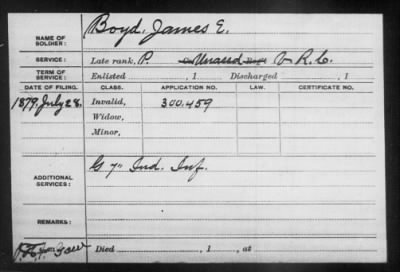 NAME OF SOLDIER: Boyd, James E.
SERVICE: Late rank, P. Unassd V. R. C.
TERM OF SERVICE: Enlisted , 1 Discharged , 1
DATE OF FILING. CLASS. APPLICATION NO. LAW. CERTIFICATE NO.
1879, July 28. Invalid, 300.459
Widow,
Minor,
ADDITIONAL SERVICES: G 7" Ind. Inf.
REMARKS:
Died , 1 , at